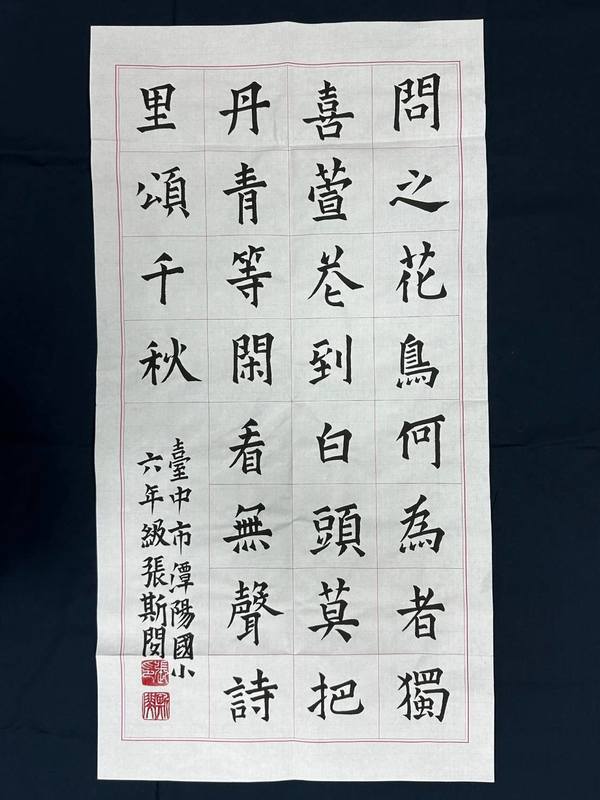 問之花鳥何為者獨
喜萱花到白頭莫把
丹青等閑看無聲詩
里頌千秋
臺中市潭陽國小
六年級張斯閔